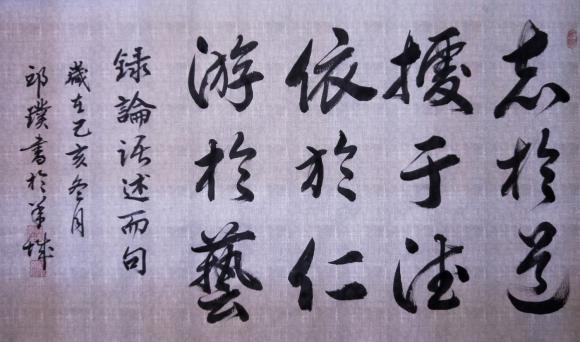 志於道
據于德
依於仁
游於藝
録論語述而句
歲在己亥冬月
邱璞書於羊城